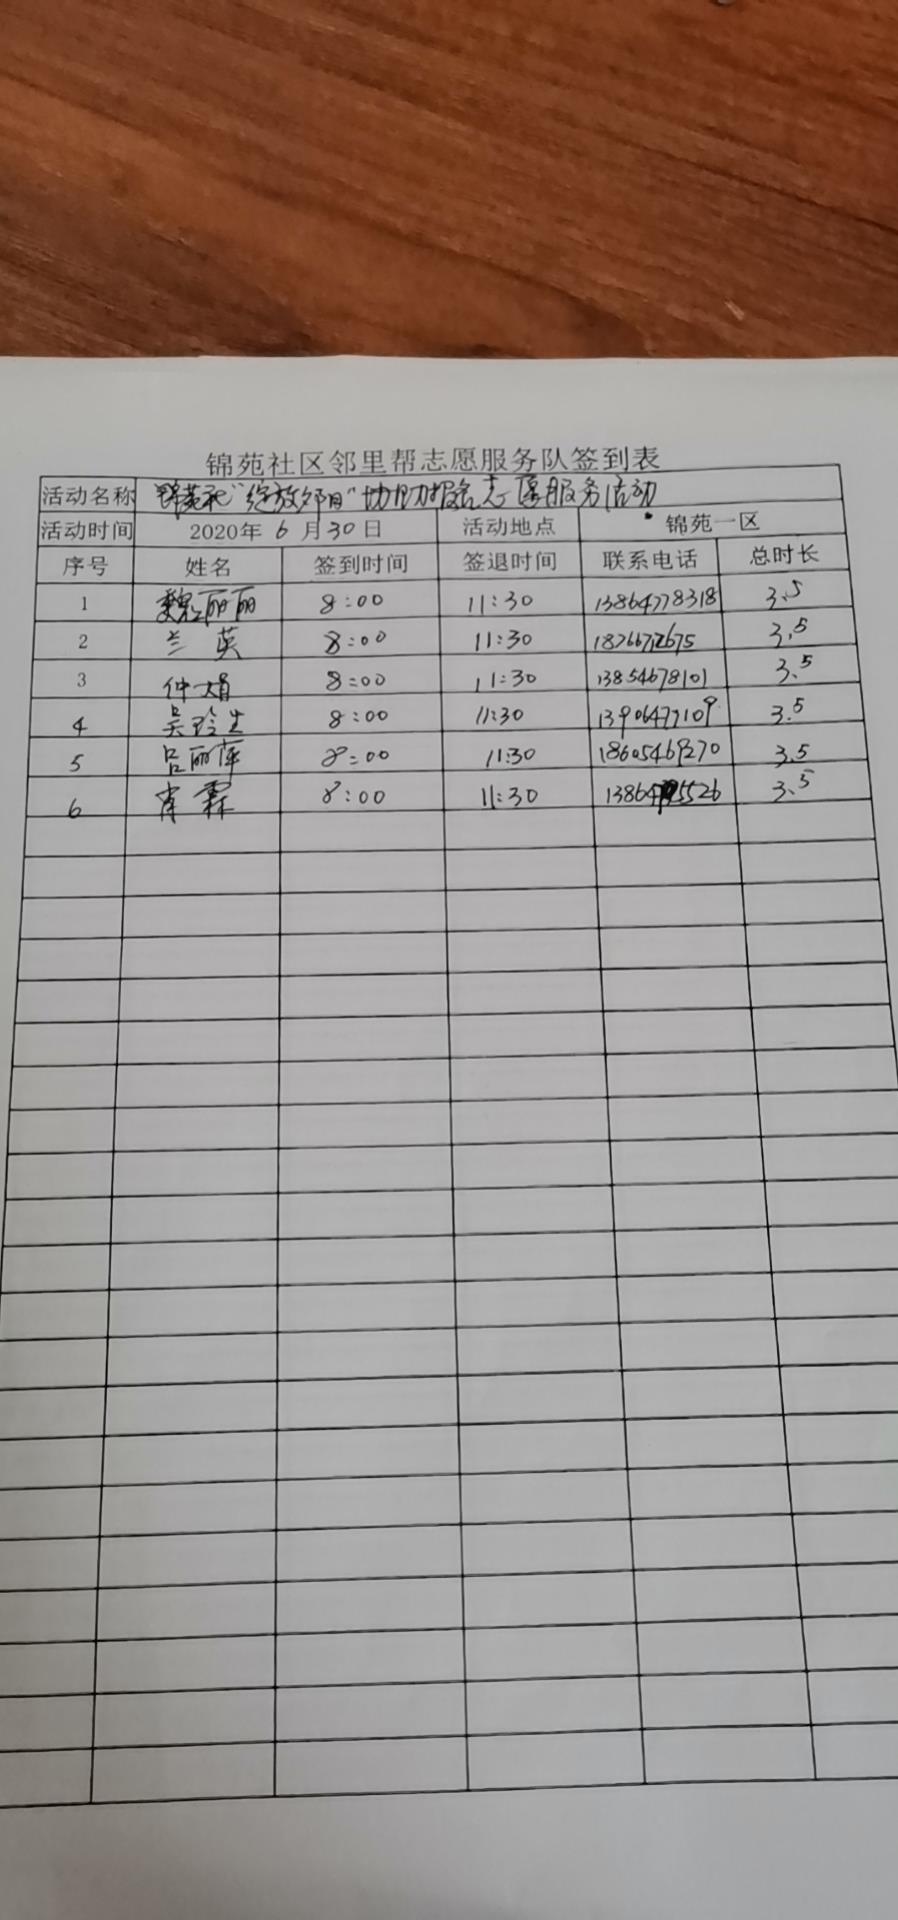 锦苑社区邻里帮志愿服务队签到表
活动名称 "绽放夕阳"协助报名志愿服务活动
活动时间 2020年 6 月 30 日 活动地点 锦苑一区
序号 姓名 签到时间 签退时间 联系电话 总时长
1 魏丽丽 8:00 11:30 13864778318 3.5
2 兰英 8:00 11:30 3.5
3 仲娟 8:00 11:30 13854678101 3.5
4 吴玲生 8:00 11:30 13906477109 3.5
5 吕丽萍 8:00 11:30 18605469270 3.5
6 肖霖 8:00 11:30 3.5